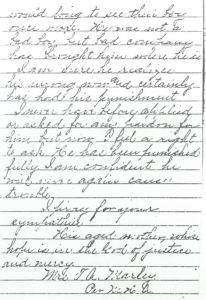 would long to see their boy
once more. He was not a
bad boy, but bad company
has brought him where he is
I am sure he realizes
his wrong now and certainly
has had his punishment
I never have before applied
or asked for any pardon for
him but now I feel a right
to ask. He has been punished
fully. I am confident he
will never again cause
trouble.
for your
sympathies
His aged mother, whose
hope is in the God of justice
and mercy.
Mrs. T.A. Marley
Per